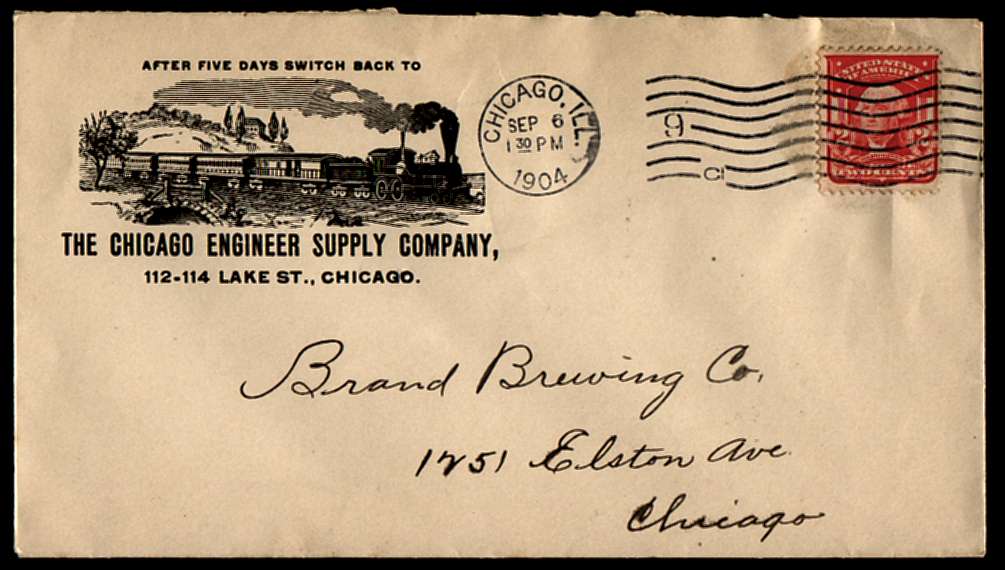 AFTER FIVE DAYS SWITCH BACK TO
THE CHICAGO ENGINEER SUPPLY COMPANY,
112-114 LAKE ST., CHICAGO.
CHICAGO, ILL.
SEP 6
1 30 PM
1904
9
C
UNITED STATES
OF AMERICA
2 2
TWO CENTS
Brand Brewing Co.
1251 Elston Ave.
Chicago